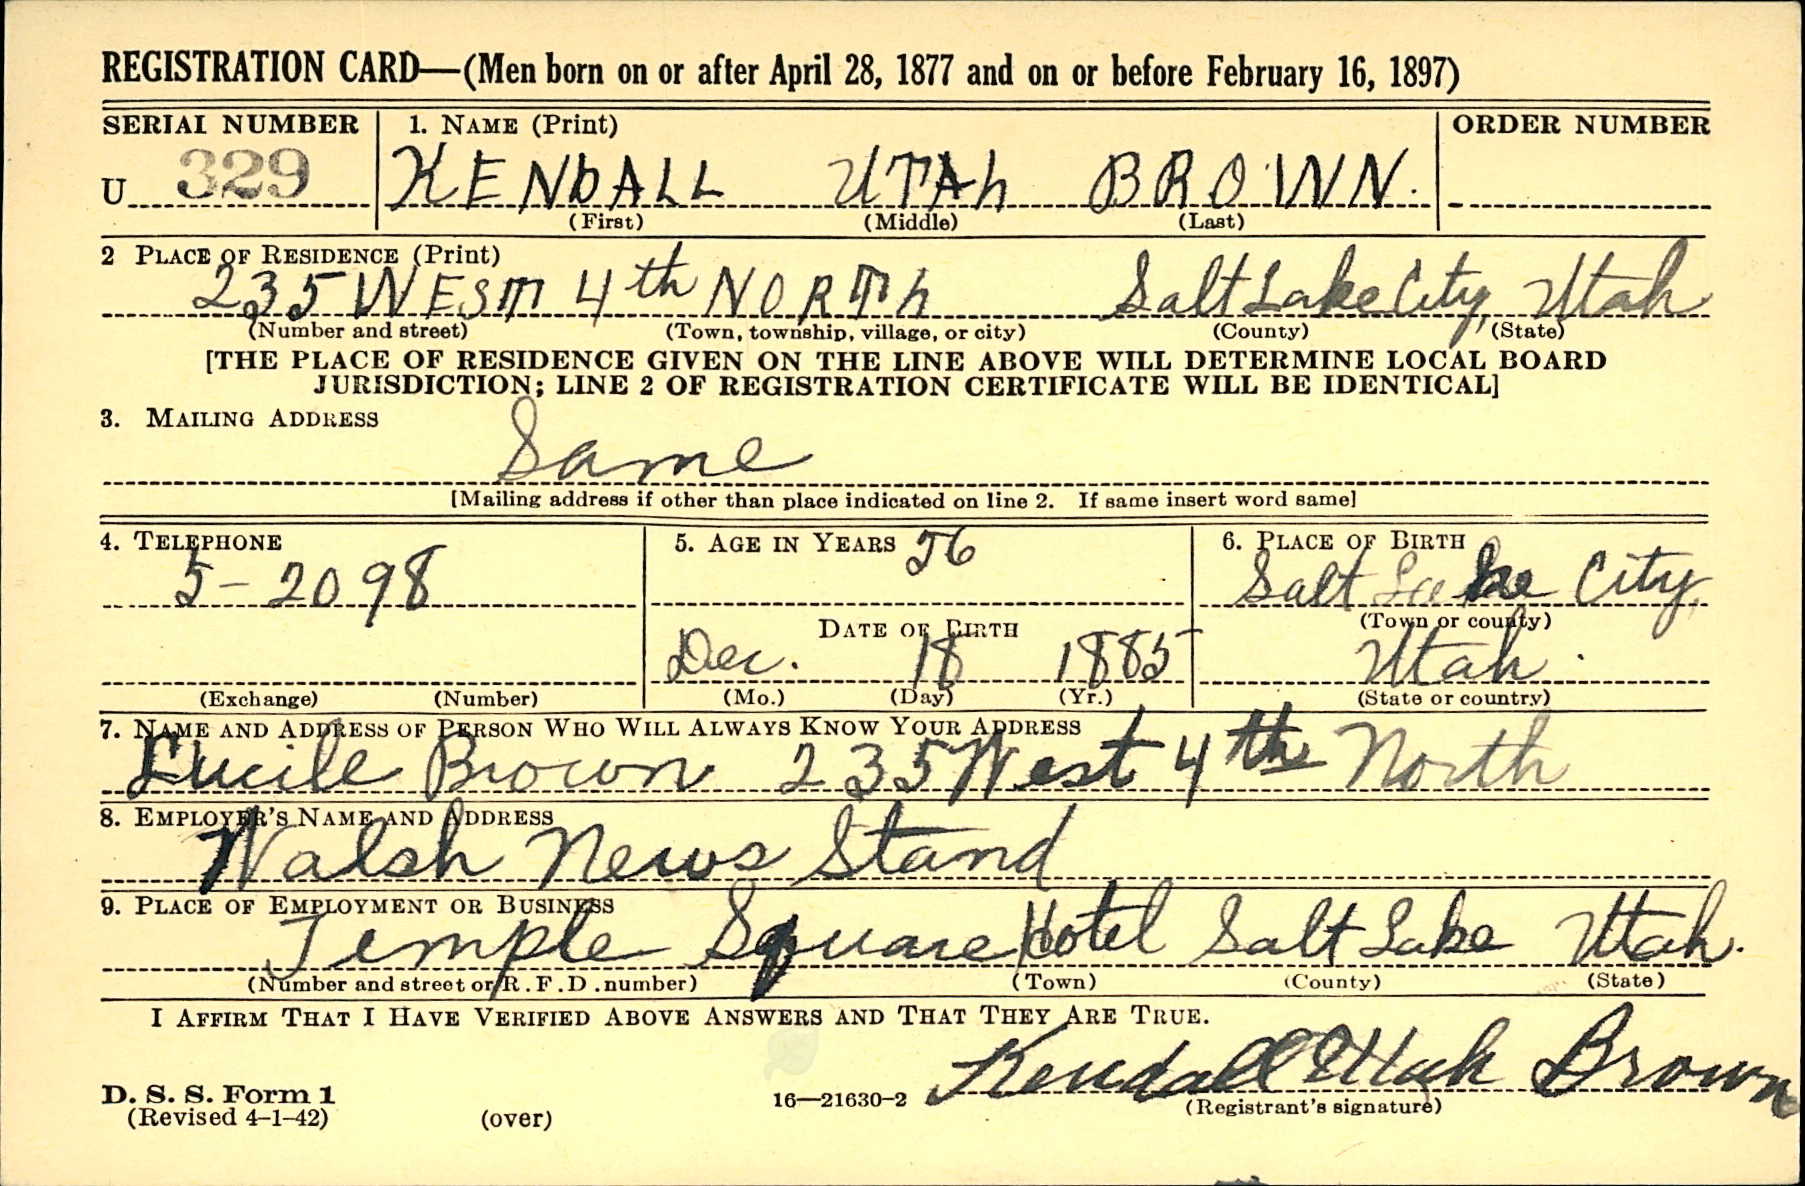 REGISTRATION CARD—(Men born on or after April 28, 1877 and on or before February 16, 1897)
SERIAL NUMBER 1. NAME (Print) ORDER NUMBER
U 329 KENDALL UTAh BROWN.
(First) (Middle) (Last)
2 PLACE OF RESIDENCE (Print)
235 WEST 4th NORTh Salt Lake City, Utah
(Number and street) (Town, township, village, or city) (County) (State)
[THE PLACE OF RESIDENCE GIVEN ON THE LINE ABOVE WILL DETERMINE LOCAL BOARD
JURISDICTION; LINE 2 OF REGISTRATION CERTIFICATE WILL BE IDENTICAL]
3. MAILING ADDRESS
Same
[Mailing address if other than place indicated on line 2. If same insert word same]
4. TELEPHONE 5. AGE IN YEARS 56 6. PLACE OF BIRTH
5-2098 Salt Lake City,
(Town or county)
DATE OF BIRTH
Dec. 18 1885 Utah.
(Exchange) (Number) (Mo.) (Day) (Yr.) (State or country)
7. NAME AND ADDRESS OF PERSON WHO WILL ALWAYS KNOW YOUR ADDRESS
Lucile Brown 235 West 4th North
8. EMPLOYER'S NAME AND ADDRESS
Walsh News Stand
9. PLACE OF EMPLOYMENT OR BUSINESS
Temple Square Hotel Salt Lake Utah.
(Number and street or R.F.D. number) (Town) (County) (State)
I AFFIRM THAT I HAVE VERIFIED ABOVE ANSWERS AND THAT THEY ARE TRUE.
Kendall Utah Brown
D. S. S. Form 1
(Revised 4-1-42) (over) 16—21630-2 (Registrant's signature)